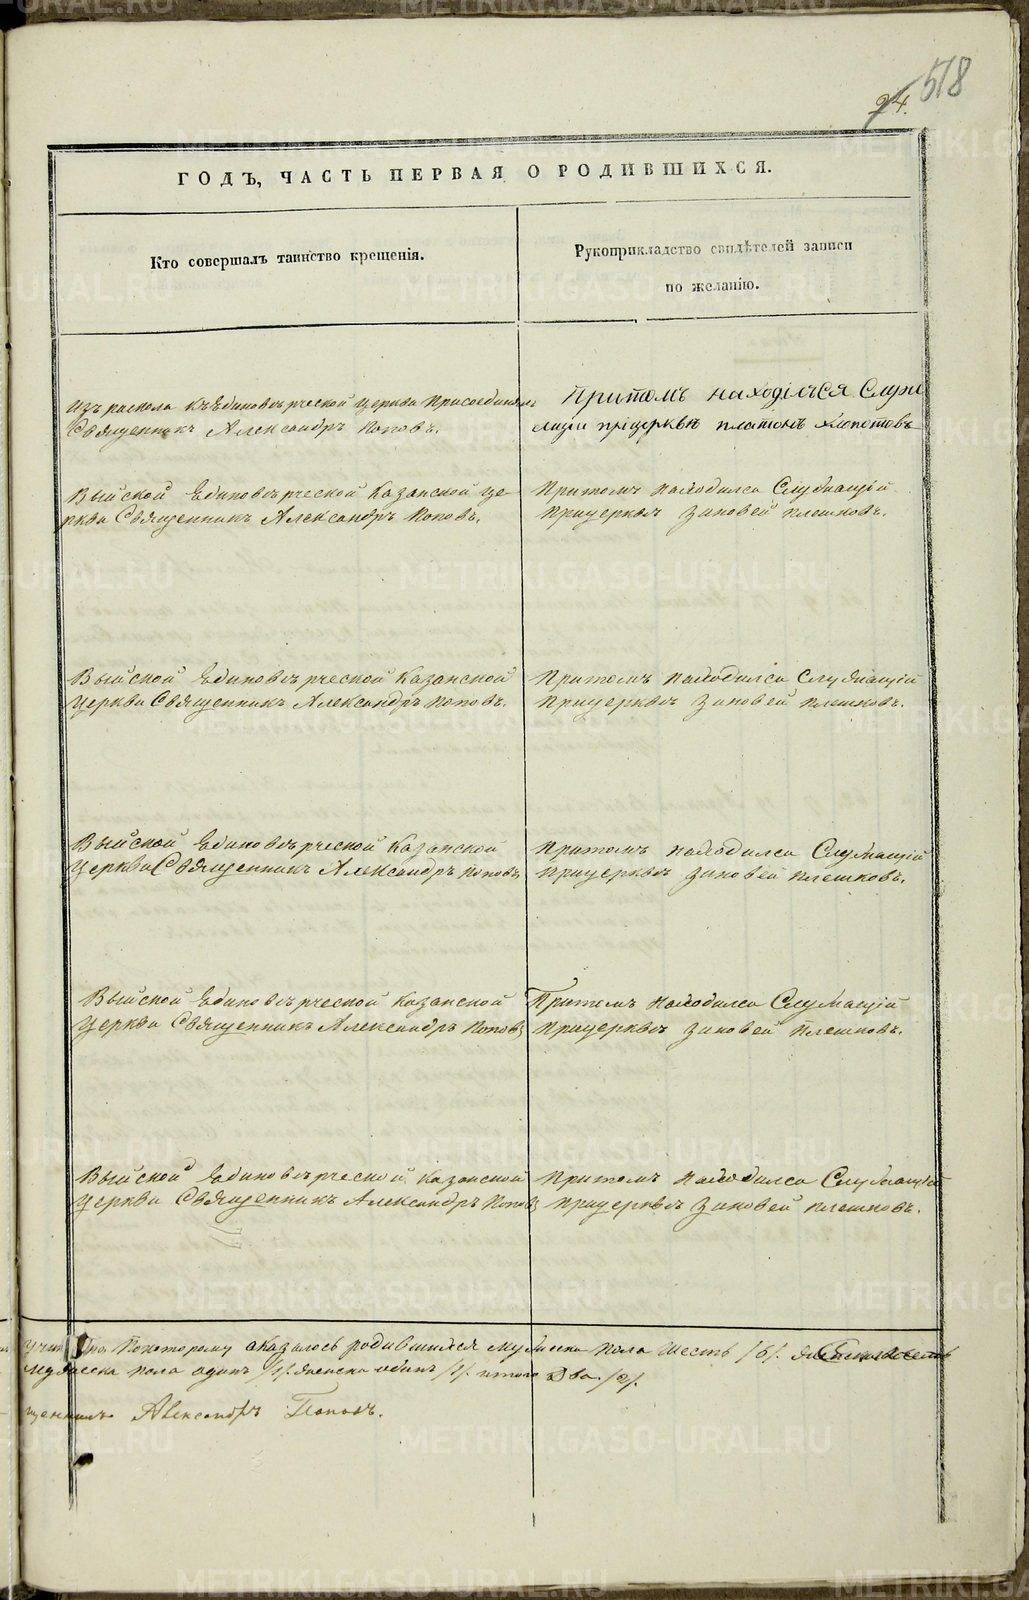 518
94.
ГОДЪ, ЧАСТЬ ПЕРВАЯ О РОДИВШИХСЯ.
Кто совершалъ таинство крещенія.
Рукоприкладство свидѣтелей записи
по желанію.
Изъ раскола къ Единовѣрческой Церкви Присоединялъ
Священникъ Александръ Поповъ.
Притомъ находілъся Служ
ащіи пріцерквѣ платонъ хлопотовъ
Выйской Единовѣрческой Казанской Це-
ркви Священникъ Александръ Поповъ.
Притомъ находился Служащій
Прицерквѣ Зиновей Плешковъ.
Выйской Единовѣрческой Казанской
Церкви Священникъ Александръ Поповъ.
Притомъ находился Служащій
Прицерквѣ Зиновей Плешковъ.
Выйской Единовѣрческой Казанской
Церкви Священникъ Александръ Поповъ
Притомъ находился Служащій
Прицерквѣ Зиновей Плешковъ.
Выйской Единовѣрческой Казанской
Церкви Священникъ Александръ Поповъ
Притомъ находился Служащій
Прицерквѣ Зиновей Плешковъ.
Выйской Единовѣрческой Казанской
Церкви Священникъ Александръ Поповъ
Притомъ находился Служащій
Прицерквѣ Зиновей Плешковъ.
Покоторому аказалось родившихся мужеска пола шесть /6/.
мужеска пола одинъ /1/. женска одинъ /1/. итого Два /2/.
щенникъ Александръ Поповъ.
METRIKI.GASO-URAL.RU